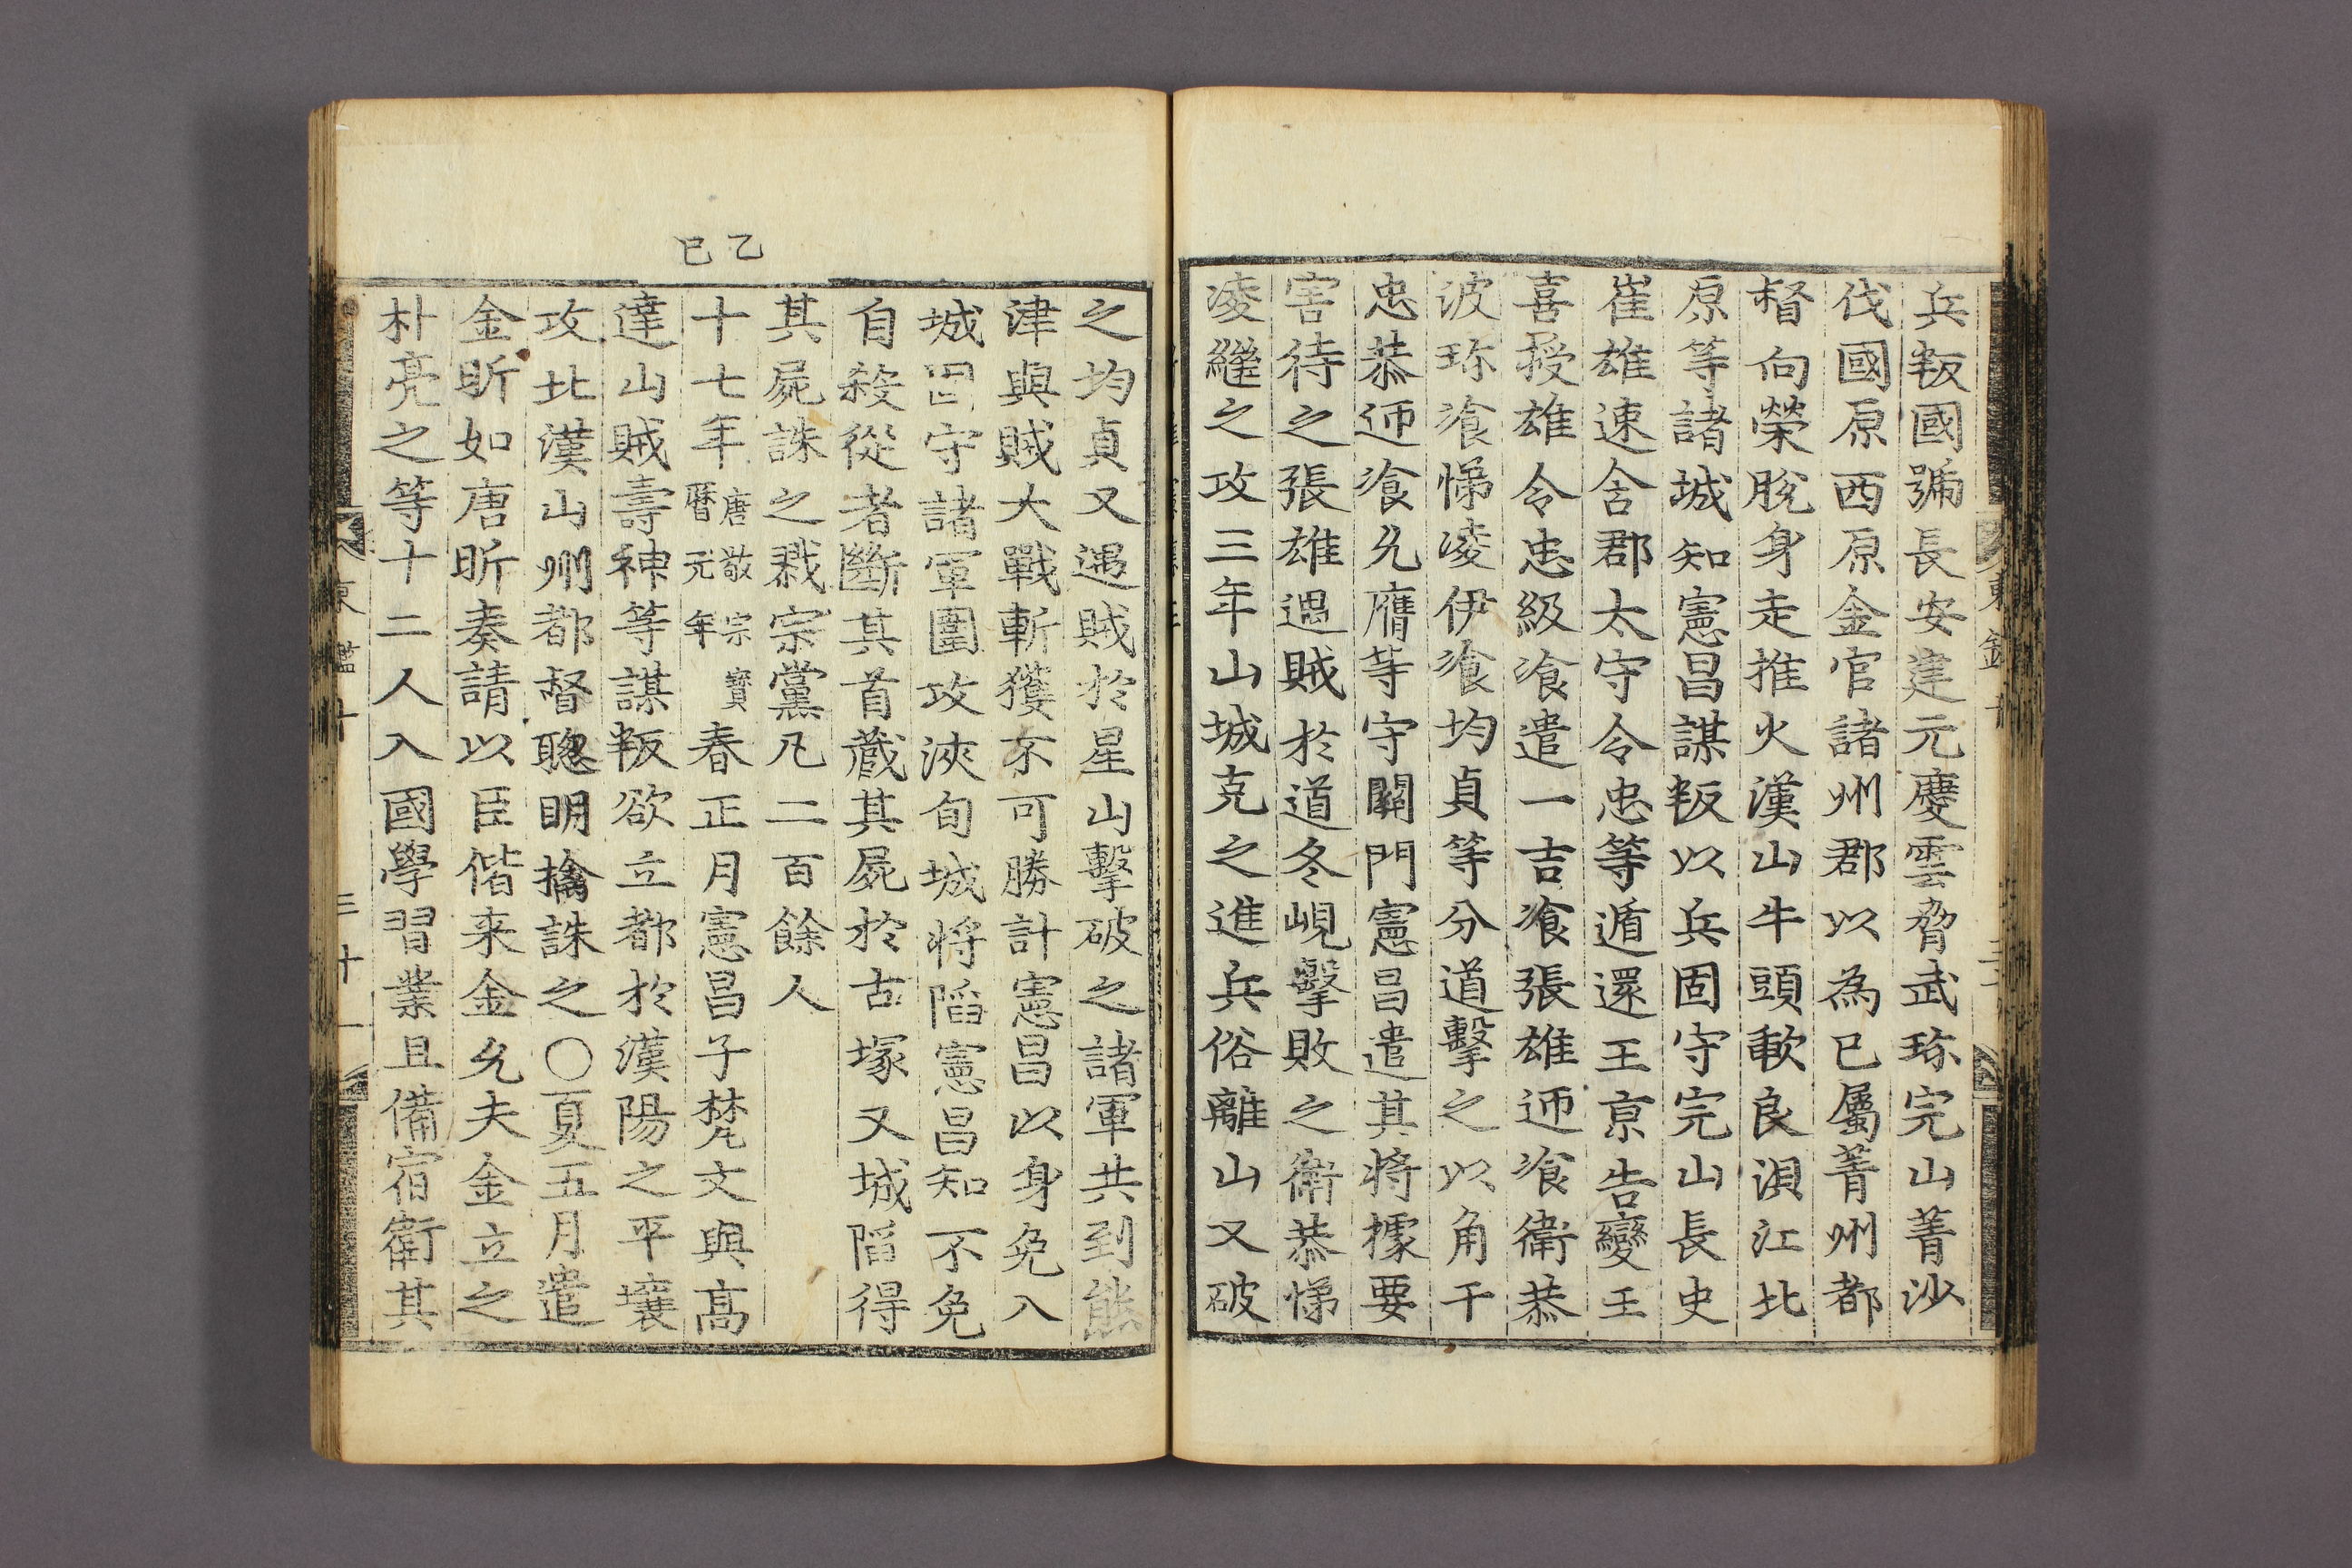 兵叛國號長安建元慶雲脅武珍完山菁沙
伐國原西原金官諸州郡以為已屬菁州都
督向榮脫身走推火漢山牛頭歃良浿江北
原等諸城知憲昌謀叛以兵固守完山長史
崔雄速含郡太守令忠等遁還王京告變王
喜授雄令忠級飡遣一吉飡張雄迊飡衛恭
波珍飡悌凌伊飡均貞等分道擊之以角干
忠恭迊飡允膺等守關門憲昌遣其將據要
害待之張雄遇賊於道冬峴擊敗之衛恭悌
凌繼之攻三年山城克之進兵俗離山又破
之均貞又遇賊於星山擊破之諸軍共到熊
津與賊大戰斬獲不可勝計憲昌以身免入
城固守諸軍圍攻浹旬城將陷憲昌知不免
自殺從者斷其首藏其屍於古塚又城陷得
其屍誅之戮宗黨凡二百餘人
乙巳
十七年唐敬宗寶曆元年春正月憲昌子梵文與高
達山賊壽神等謀叛欲立都於漢陽之平壤
攻北漢山州都督聰明擒誅之○夏五月遣
金昕如唐昕奏請以臣偕来金允夫金立之
朴亮之等十二人入國學習業且備宿衛其
東鑑十
三十一